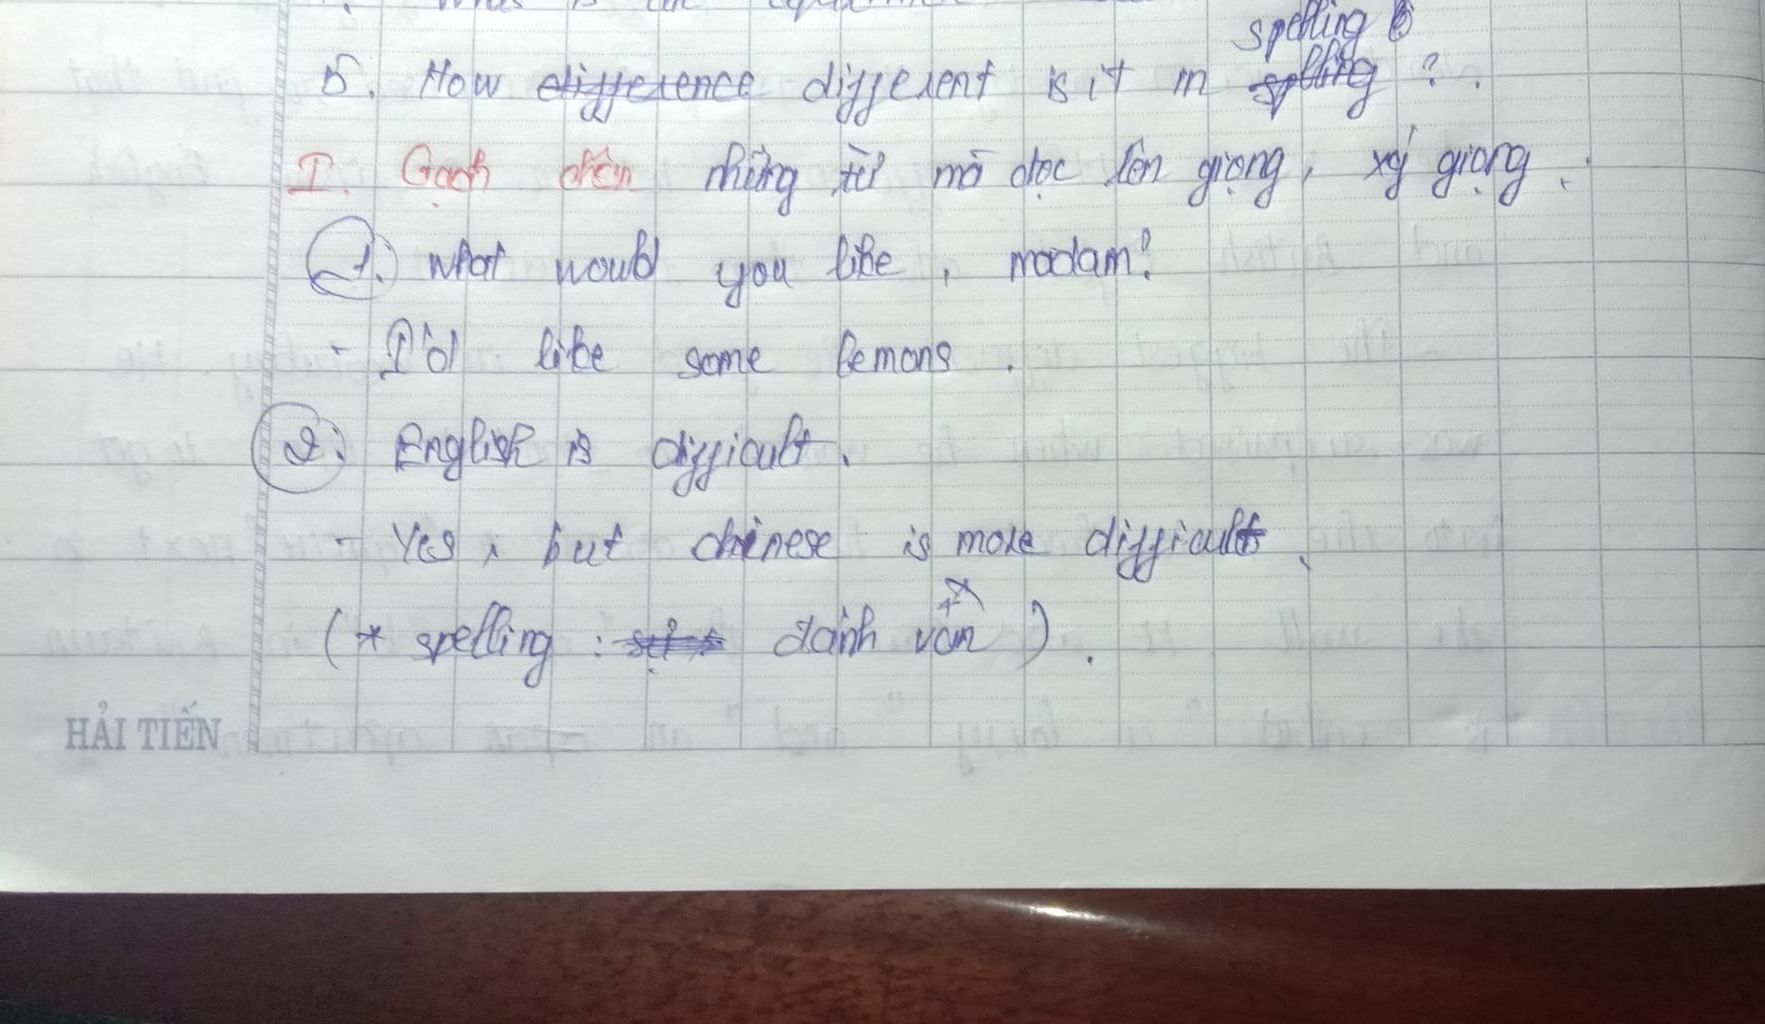 What is
spelling
5. How difference different is it in spelling ?.
I. Gạch chân những từ mà đọc lên giọng, xg giọng.
1. What would you like, madam?
- I'd like some lemons.
2. English is difficult.
- Yes, but chinese is more difficult.
(* spelling : đánh vần).
HẢI TIẾN